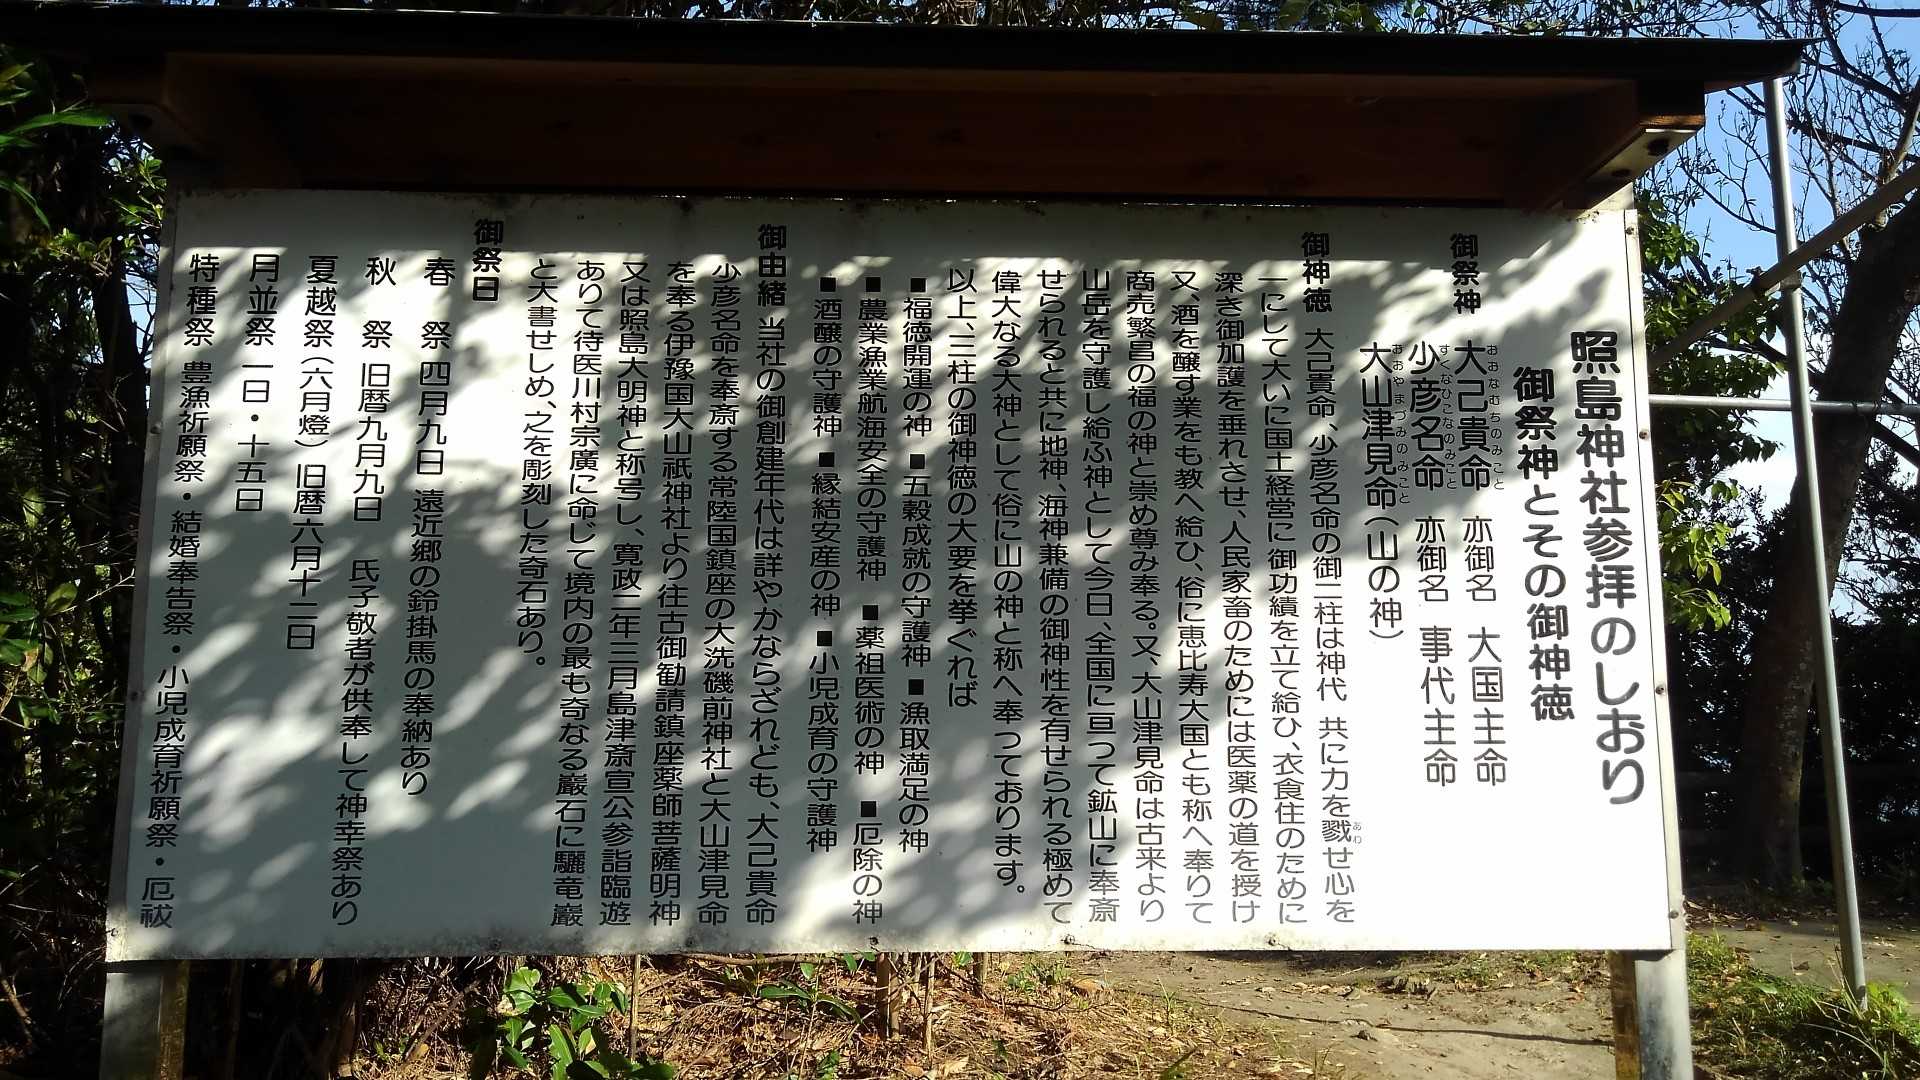 照島神社参拝のしおり
御祭神とその御神徳
御祭神 大己貴命 亦御名 大国主命
おおなむちのみこと
少彦名命 亦御名 事代主命
すくなひこなのみこと
大山津見命(山の神)
おおやまづみのみこと
御神徳 大己貴命、少彦名命の御二柱は神代 共に力を戮せ心を
あわ
一にして大いに国土経営に御功績を立て給ひ、衣食住のために
深き御加護を垂れさせ、人民家畜のためには医薬の道を授け
又、酒を醸す業をも教へ給ひ、俗に恵比寿大国とも称へ奉りて
商売繁昌の福の神と崇め尊み奉る。又、大山津見命は古来より
山岳を守護し給ふ神として今日、全国に亘って鉱山に奉斎
せられると共に地神、海神兼備の御神性を有せられる極めて
偉大なる大神として俗に山の神と称へ奉っております。
以上、三柱の御神徳の大要を挙ぐれば
■福徳開運の神 ■五穀成就の守護神 ■漁取満足の神
■農業漁業航海安全の守護神 ■薬祖医術の神 ■厄除の神
■酒醸の守護神 ■縁結安産の神 ■小児成育の守護神
御由緒 当社の御創建年代は詳やかならざれども、大己貴命
少彦名命を奉斎する常陸国鎮座の大洗磯前神社と大山津見命
を奉る伊豫国大山祇神社より往古御勧請鎮座薬師菩薩明神
又は照島大明神と称号し、寛政二年三月島津斎宣公参詣臨遊
ありて待医川村宗廣に命じて境内の最も奇なる巖石に驪竜巖
と大書せしめ、之を彫刻した奇石あり。
御祭日
春 祭 四月九日 遠近郷の鈴掛馬の奉納あり
秋 祭 旧暦九月九日 氏子敬者が供奉して神幸祭あり
夏越祭(六月燈)旧暦六月十二日
月並祭 一日・十五日
特種祭 豊漁祈願祭・結婚奉告祭・小児成育祈願祭・厄祓